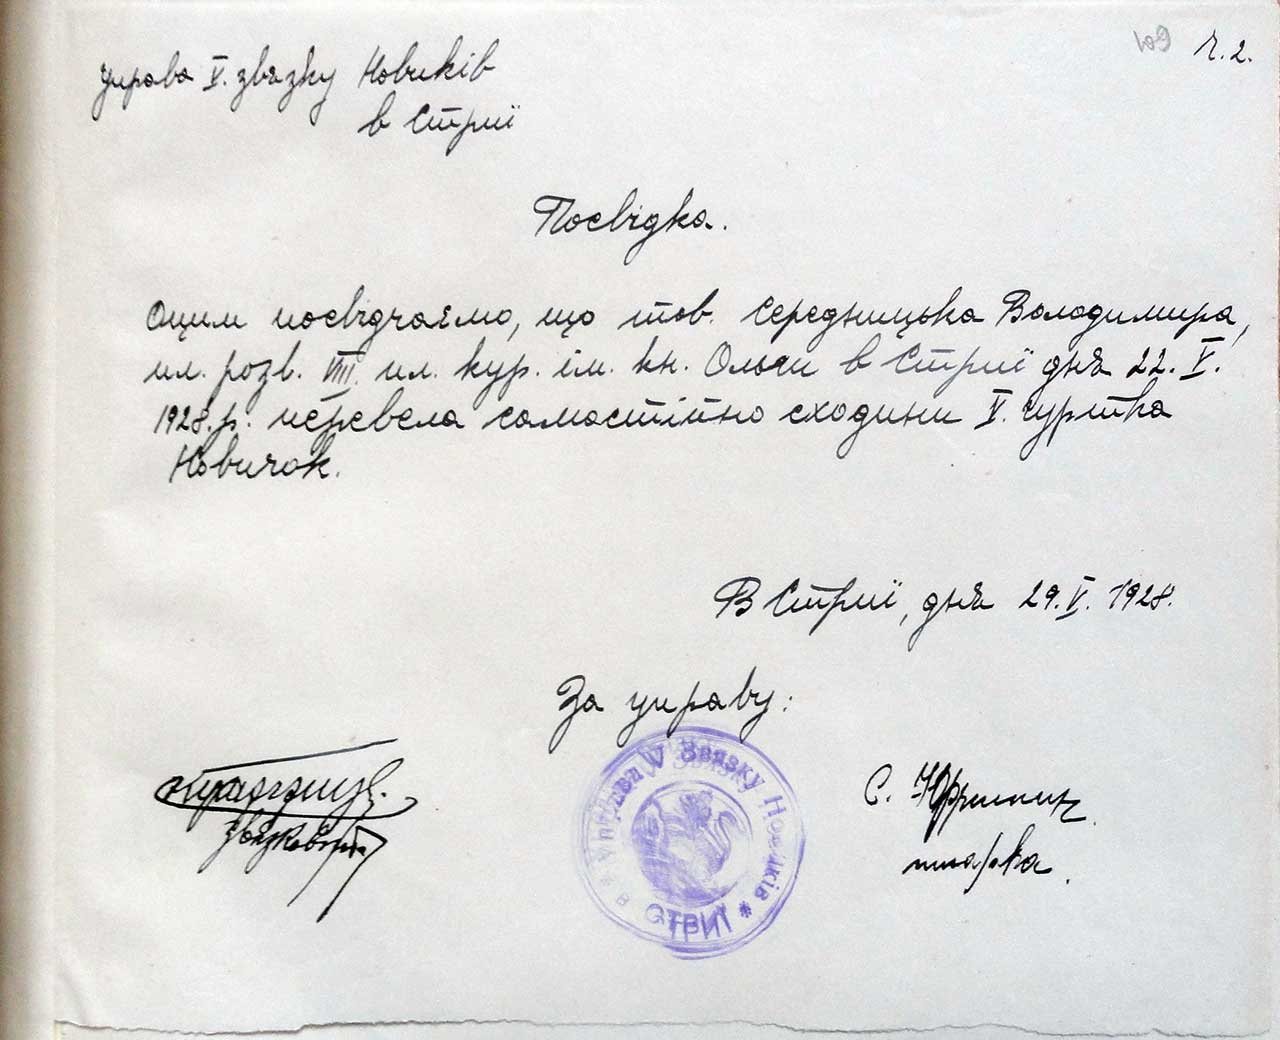 109 Ч. 2.
Управа V. звязку Новиків
в Стриї
Посвідка.
Оцим посвідчаємо, що тов. Середницька Володимира,
пл. розв. VIII. пл. кур. ім. кн. Ольги в Стриї дня 22. V.
1928. р. перевела самостійно сходини V. гуртка
Новичок.
В Стриї, дня 29. V. 1928.
За управу:
Управа V Звязку Новиків
в СТРИЇ *
звязковий
С.
писарка.